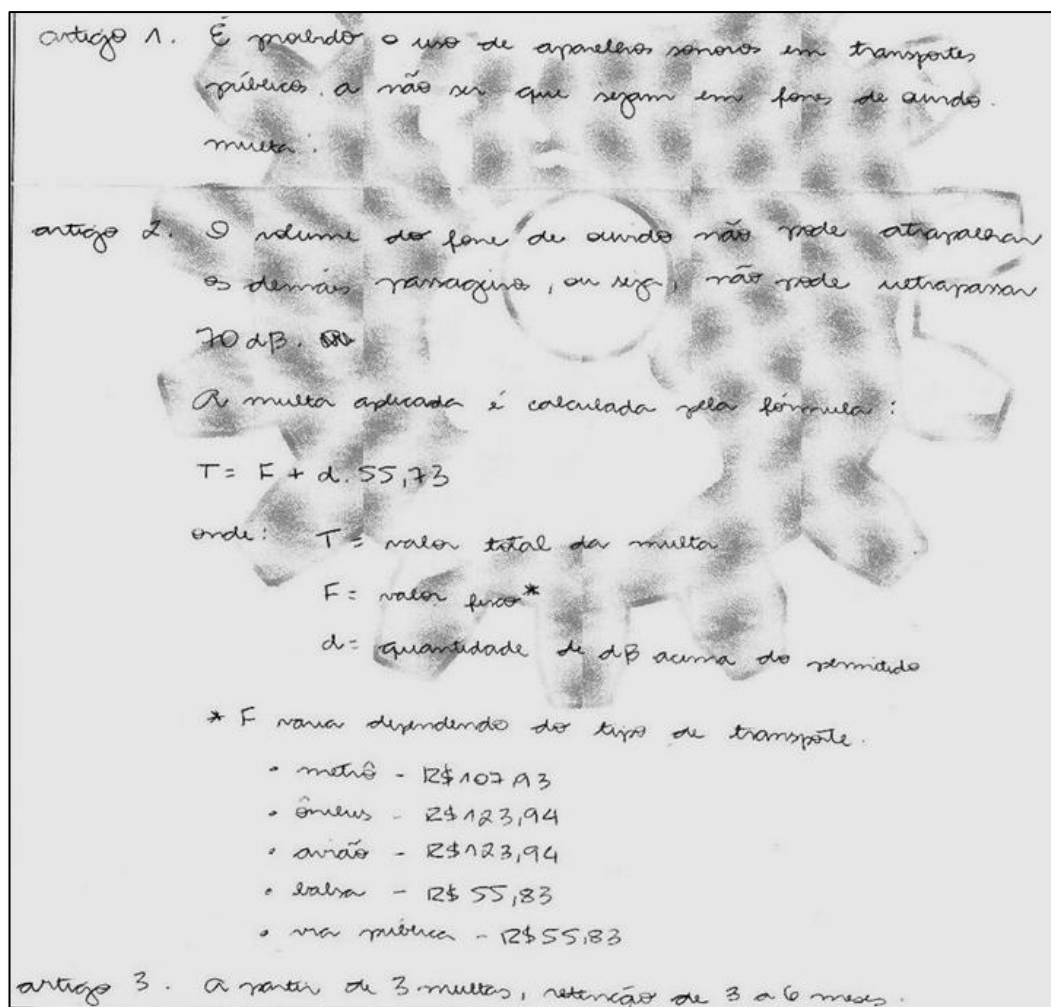 artigo 1. É proibido o uso de aparelhos sonoros em transportes
públicos, a não ser que sejam em fones de ouvido.
multa:
artigo 2. O volume do fone de ouvido não pode atrapalhar
os demais passageiros, ou seja, não pode ultrapassar
70 dB.
A multa aplicada é calculada pela fórmula:
T = F + d. 55,73
onde: T = valor total da multa
F = valor fixo*
d = quantidade de dB acima do permitido
* F varia dependendo do tipo de transporte.
• metrô - R$107,93
• ônibus - R$123,94
• avião - R$123,94
• balsa - R$ 55,83
• via pública - R$55,83
artigo 3. A partir de 3 multas, retenção de 3 a 6 meses.